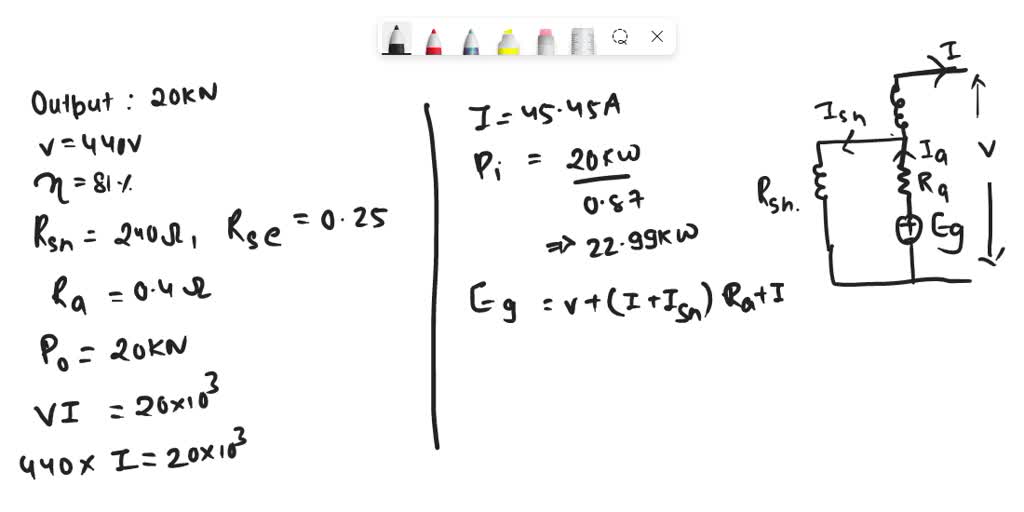 Output : 20KN
V = 440V
η = 81%
Rsh = 240Ω, Rse = 0.25
Ra = 0.4Ω
Po = 20KN
VI = 20×10³
440× I = 20×10³
I = 45.45A
Pi = 20KW
0.87
⇒ 22.99KW
Eg = V+(I+Ish) Ra+I
I
Ish
Ia
V
Ra
Rsh.
Eg